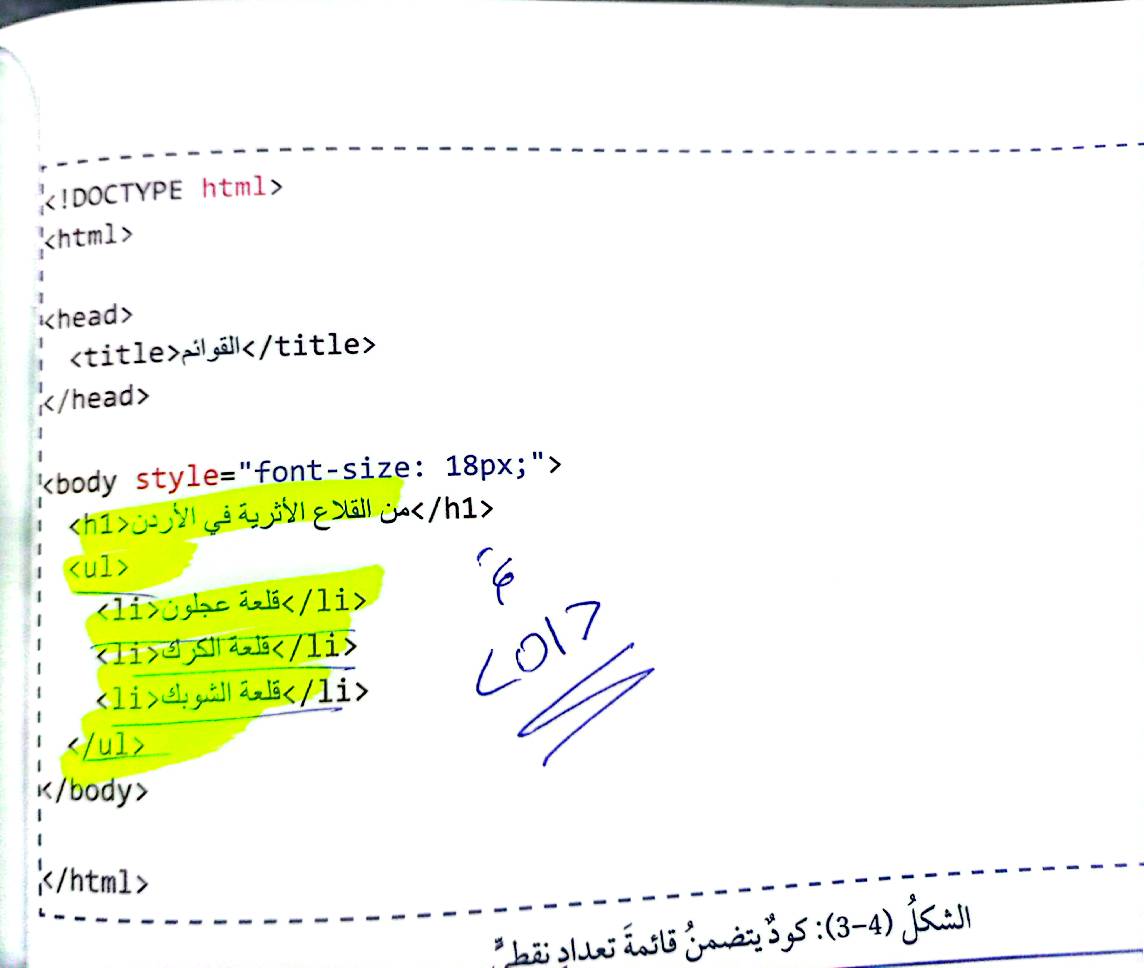 <!DOCTYPE html>
<html>
<head>
<title>القوائم</title>
</head>
<body style="font-size: 18px;">
<h1>من القلاع الأثرية في الأردن</h1>
<ul>
<li>قلعة عجلون</li>
<li>قلعة الكرك</li>
<li>قلعة الشوبك</li>
</ul>
</body>
</html>
الشكلُ (4-3): كودٌ يتضمنُ قائمةَ تعدادٍ